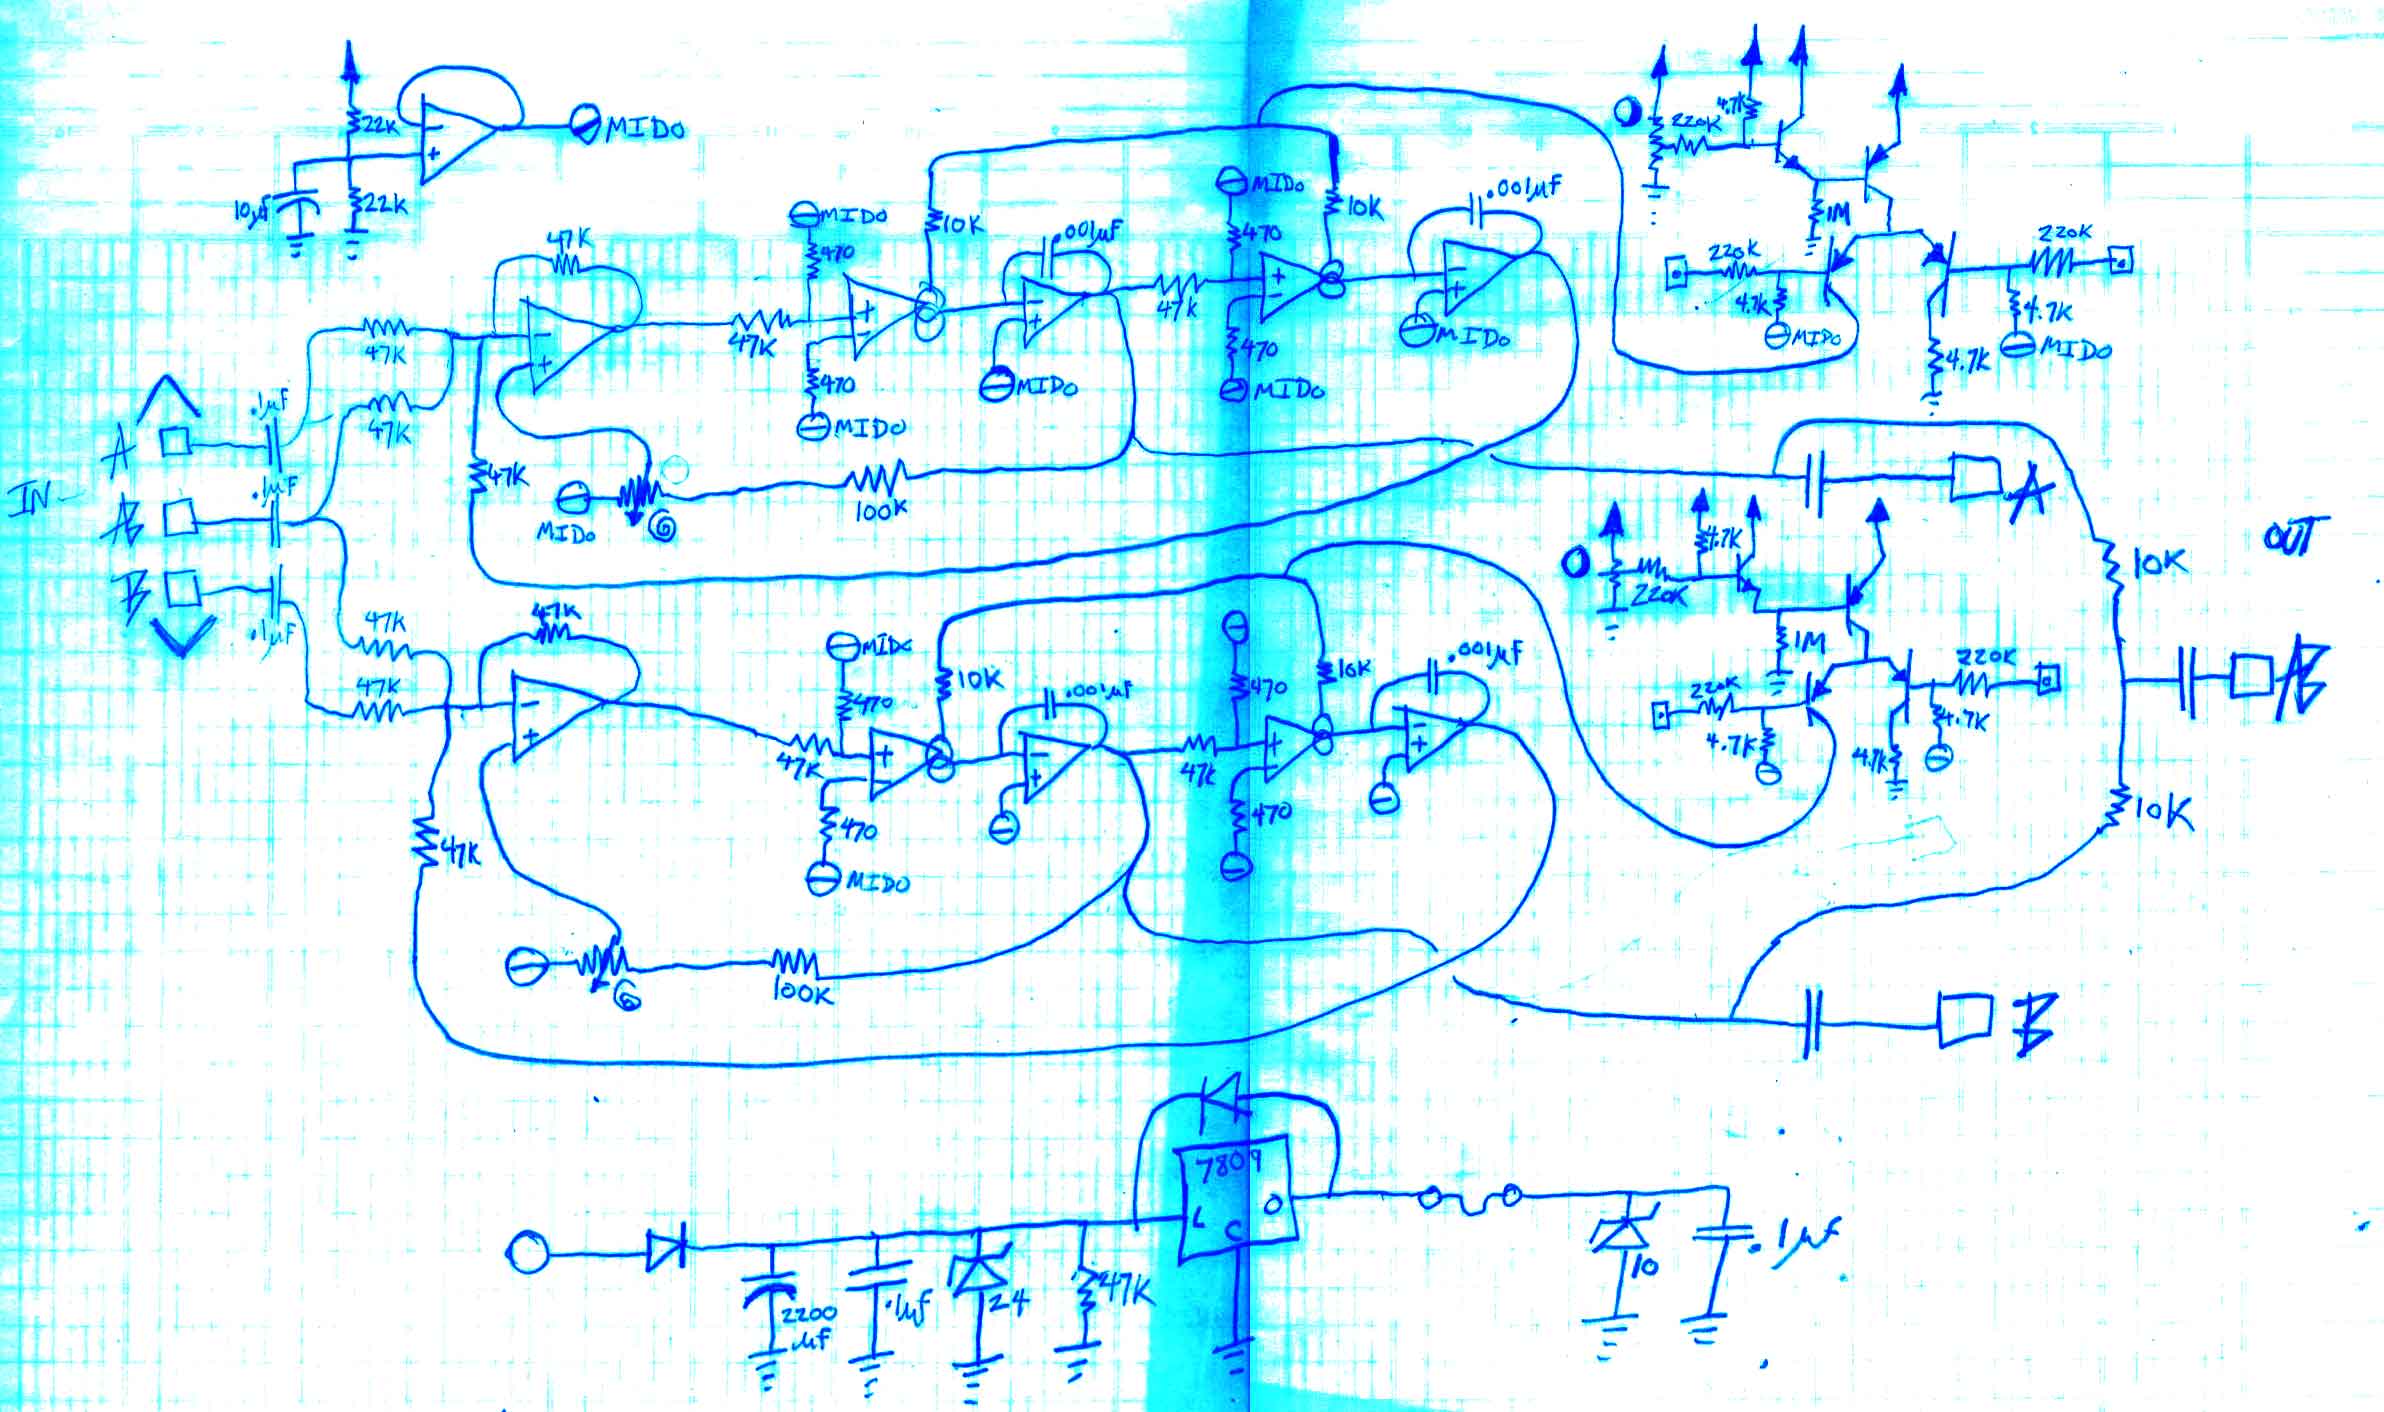 22K
22K
10µF
MIDO
IN
A
AB
B
.1µF
.1µF
.1µF
47K
47K
47K
47K
47K
MIDO
470
470
MIDO
10K
.001µF
MIDO
47K
MIDO
470
470
MIDO
10K
.001µF
MIDO
MIDO
G
100K
220K
4.7K
1M
220K
4.7K
MIDO
220K
4.7K
MIDO
4.7K
A
47K
47K
47K
47K
47K
MIDO
470
470
MIDO
10K
.001µF
47K
470
470
10K
.001µF
G
100K
4.7K
220K
1M
220K
4.7K
220K
4.7K
4.7K
10K
OUT
AB
10K
B
2200
µF
.1µF
24
47K
7809
L
C
O
10
.1µF